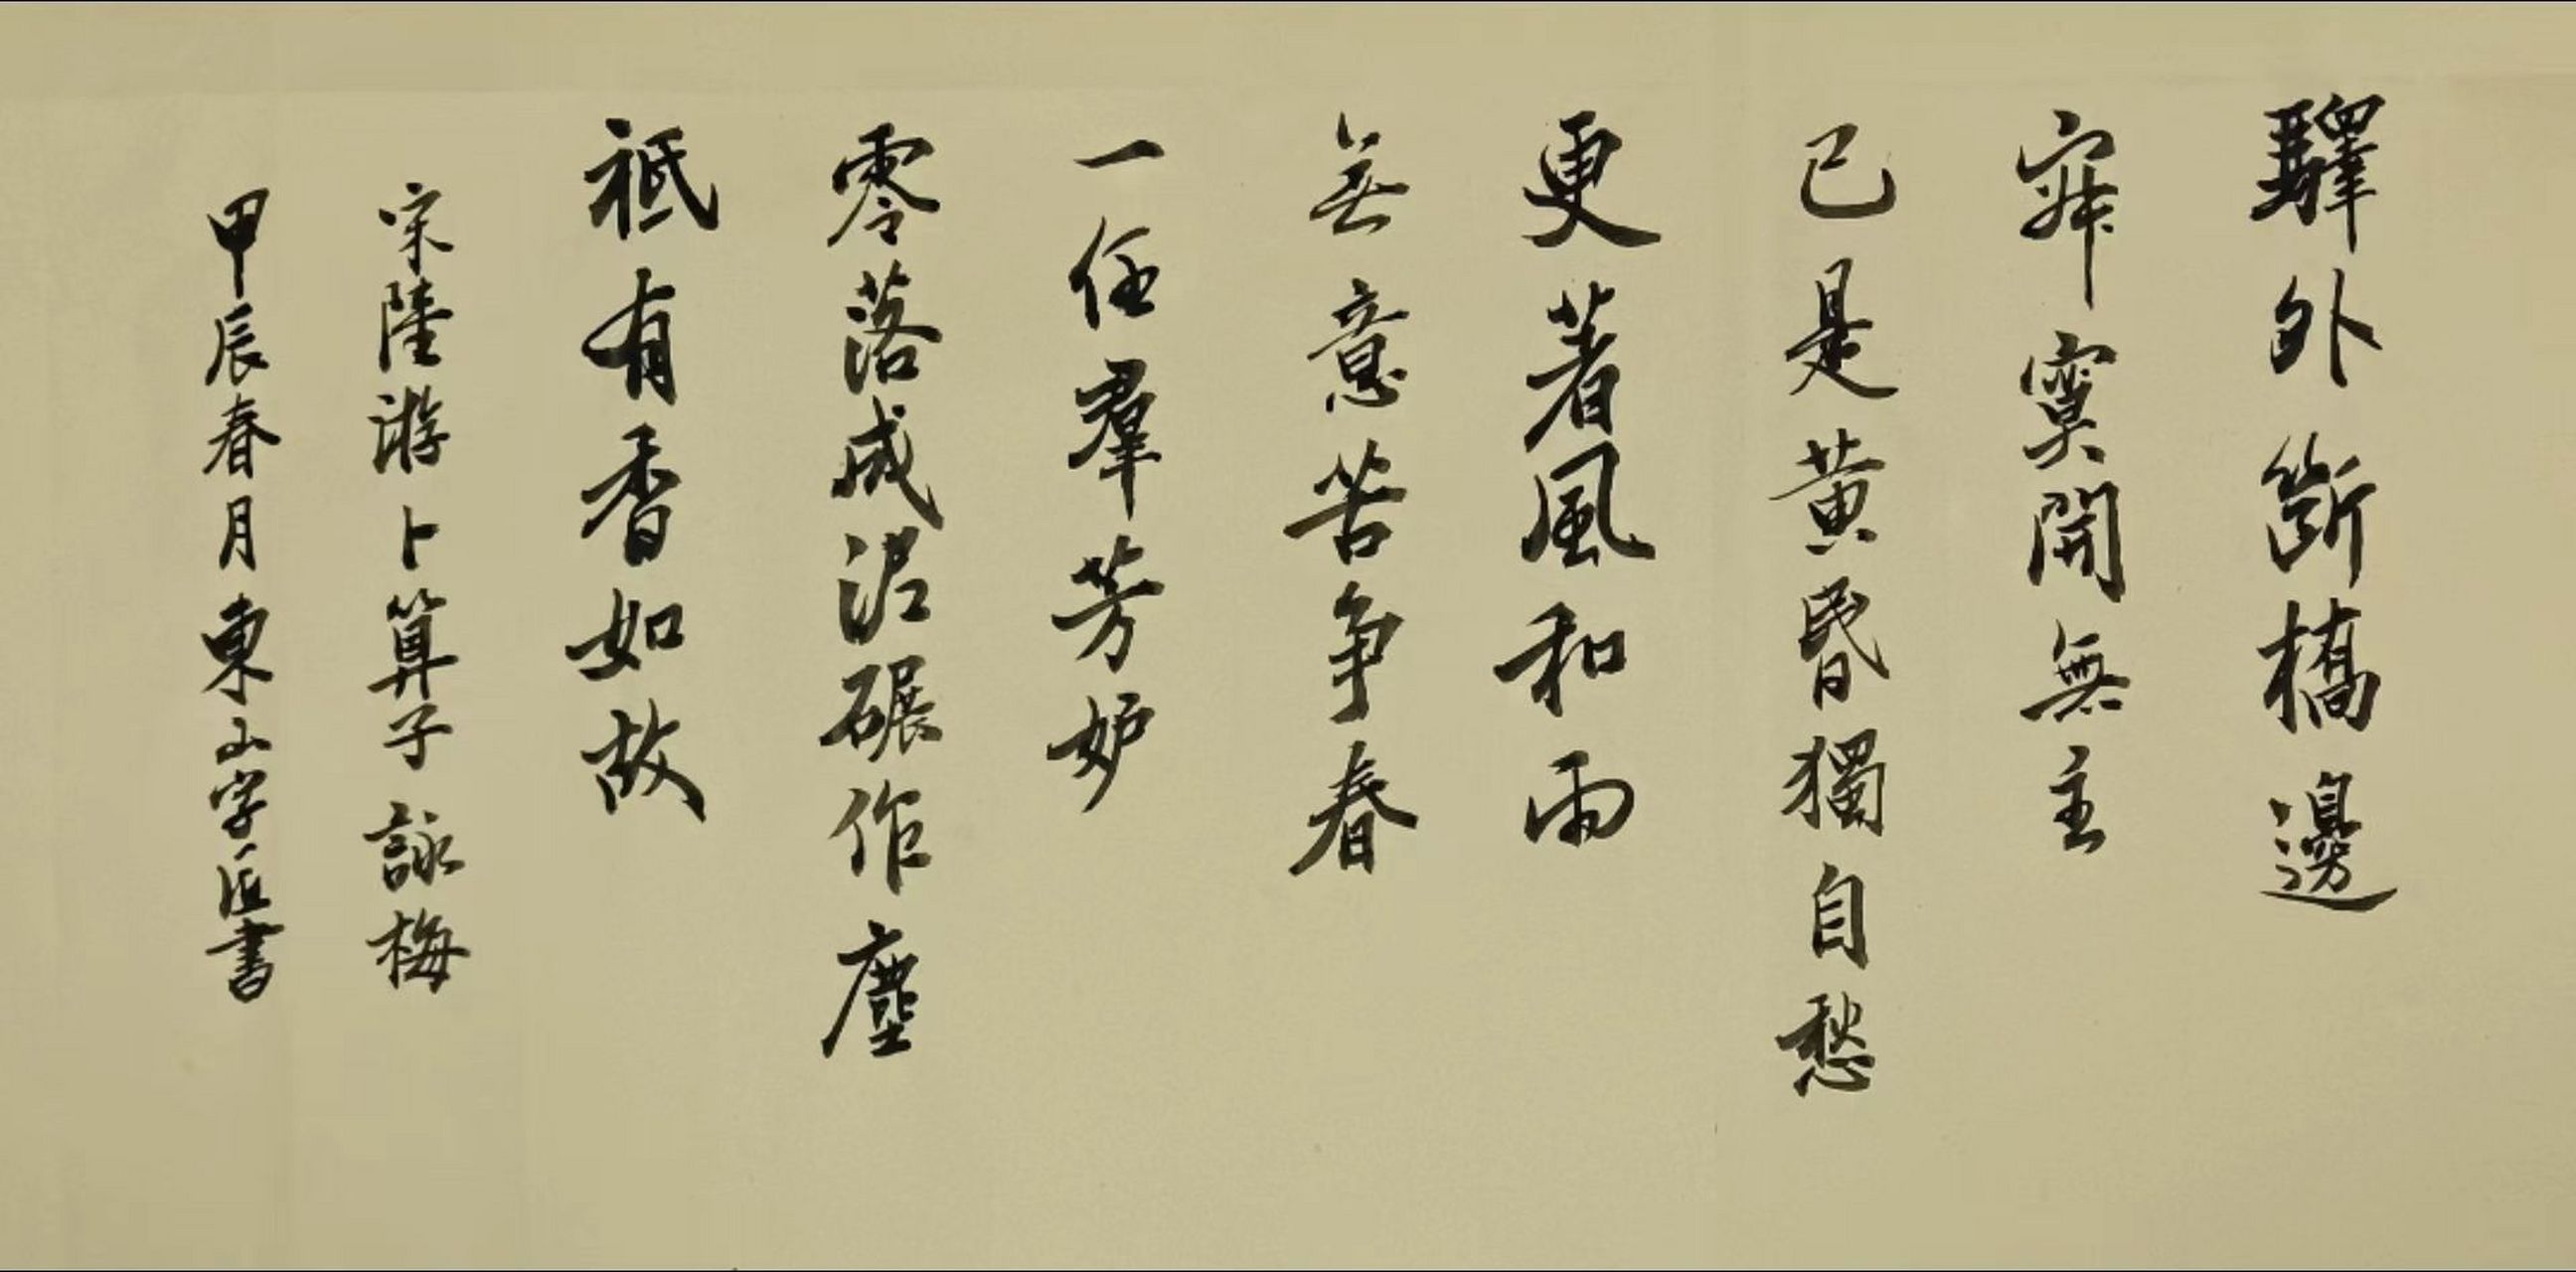 驛外斷橋邊
寂寞開無主
已是黃昬獨自愁
更著風和雨
無意苦爭春
一任羣芳妒
零落成泥碾作塵
祗有香如故
宋陸游卜算子詠梅
甲辰春月東山字匠書